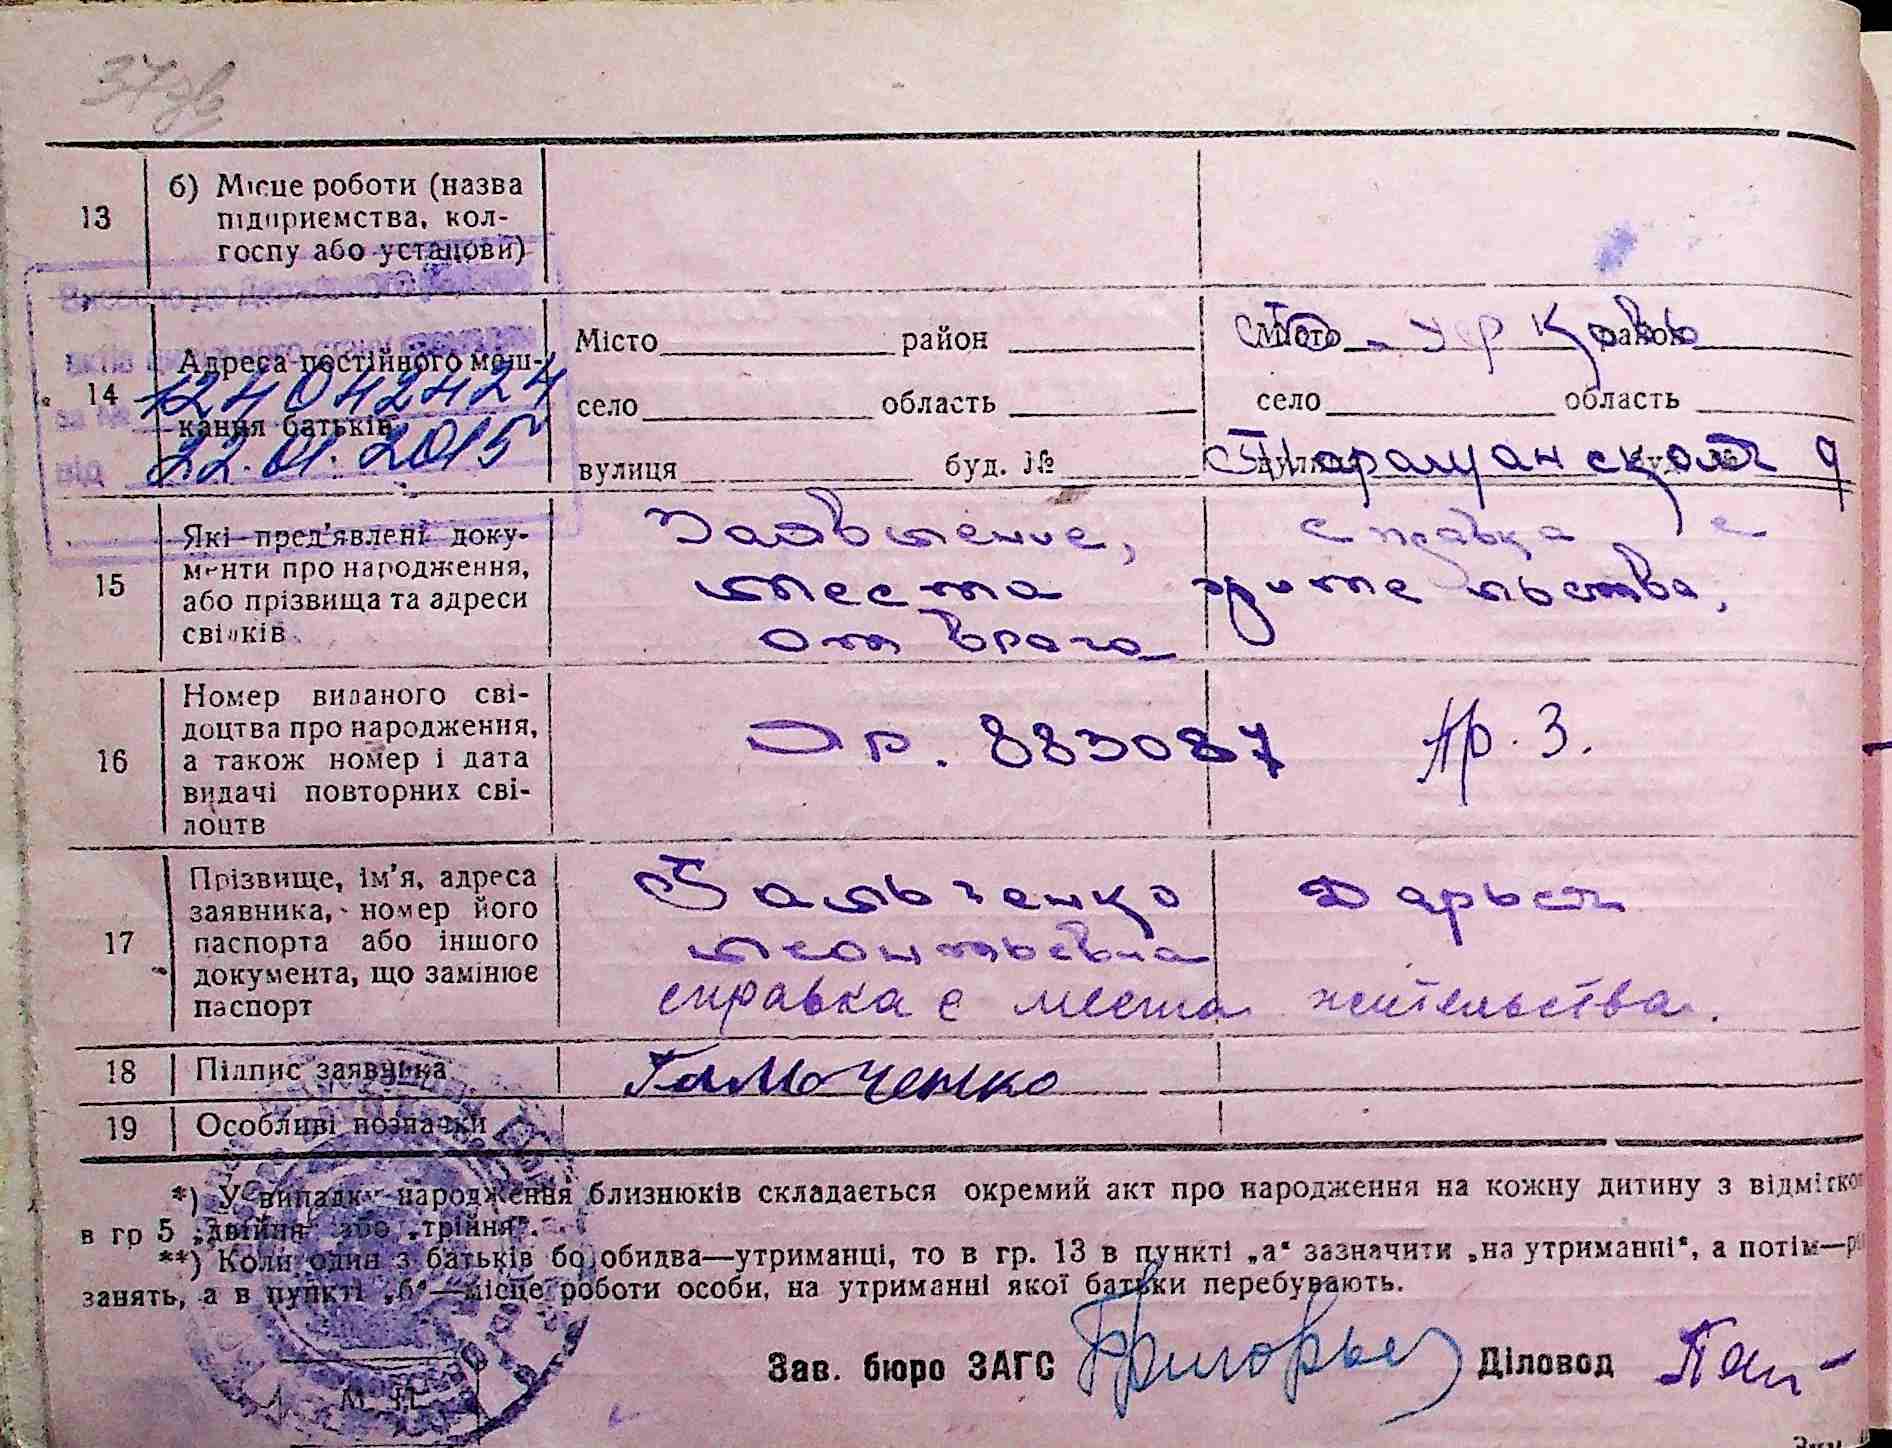 37
13
б) Місце роботи (назва
підприємства, кол-
госпу або установи)
14
Адреса постійного меш-
кання батьків
124042424
за №
від 22.01.2015
Місто район
село область
вулиця буд. №
Місто район
село область
Таращанской 9
15
Які пред'явлені доку-
менти про народження,
або прізвища та адреси
свідків
Заявление, справка с
места жительства,
от врача
16
Номер виданого сві-
доцтва про народження,
а також номер і дата
видачі повторних сві-
доцтв
883087
17
Прізвище, ім'я, адреса
заявника, номер його
паспорта або іншого
документа, що замінює
паспорт
Гальченко Дарья
Леонтьевна
справка с места жительства.
18
Підпис заявника
Гальченко
19
Особливі позначки
*) У випадку народження близнюків складається окремий акт про народження на кожну дитину з відміткою
в гр 5 „двійня“ або „трійня“.
**) Коли один з батьків бо обидва—утриманці, то в гр. 13 в пункті „а“ зазначити „на утриманні“, а потім—рід
занять, а в пункті „б“—місце роботи особи, на утриманні якої батьки перебувають.
Зав. бюро ЗАГС Григорьев Діловод
М. П.